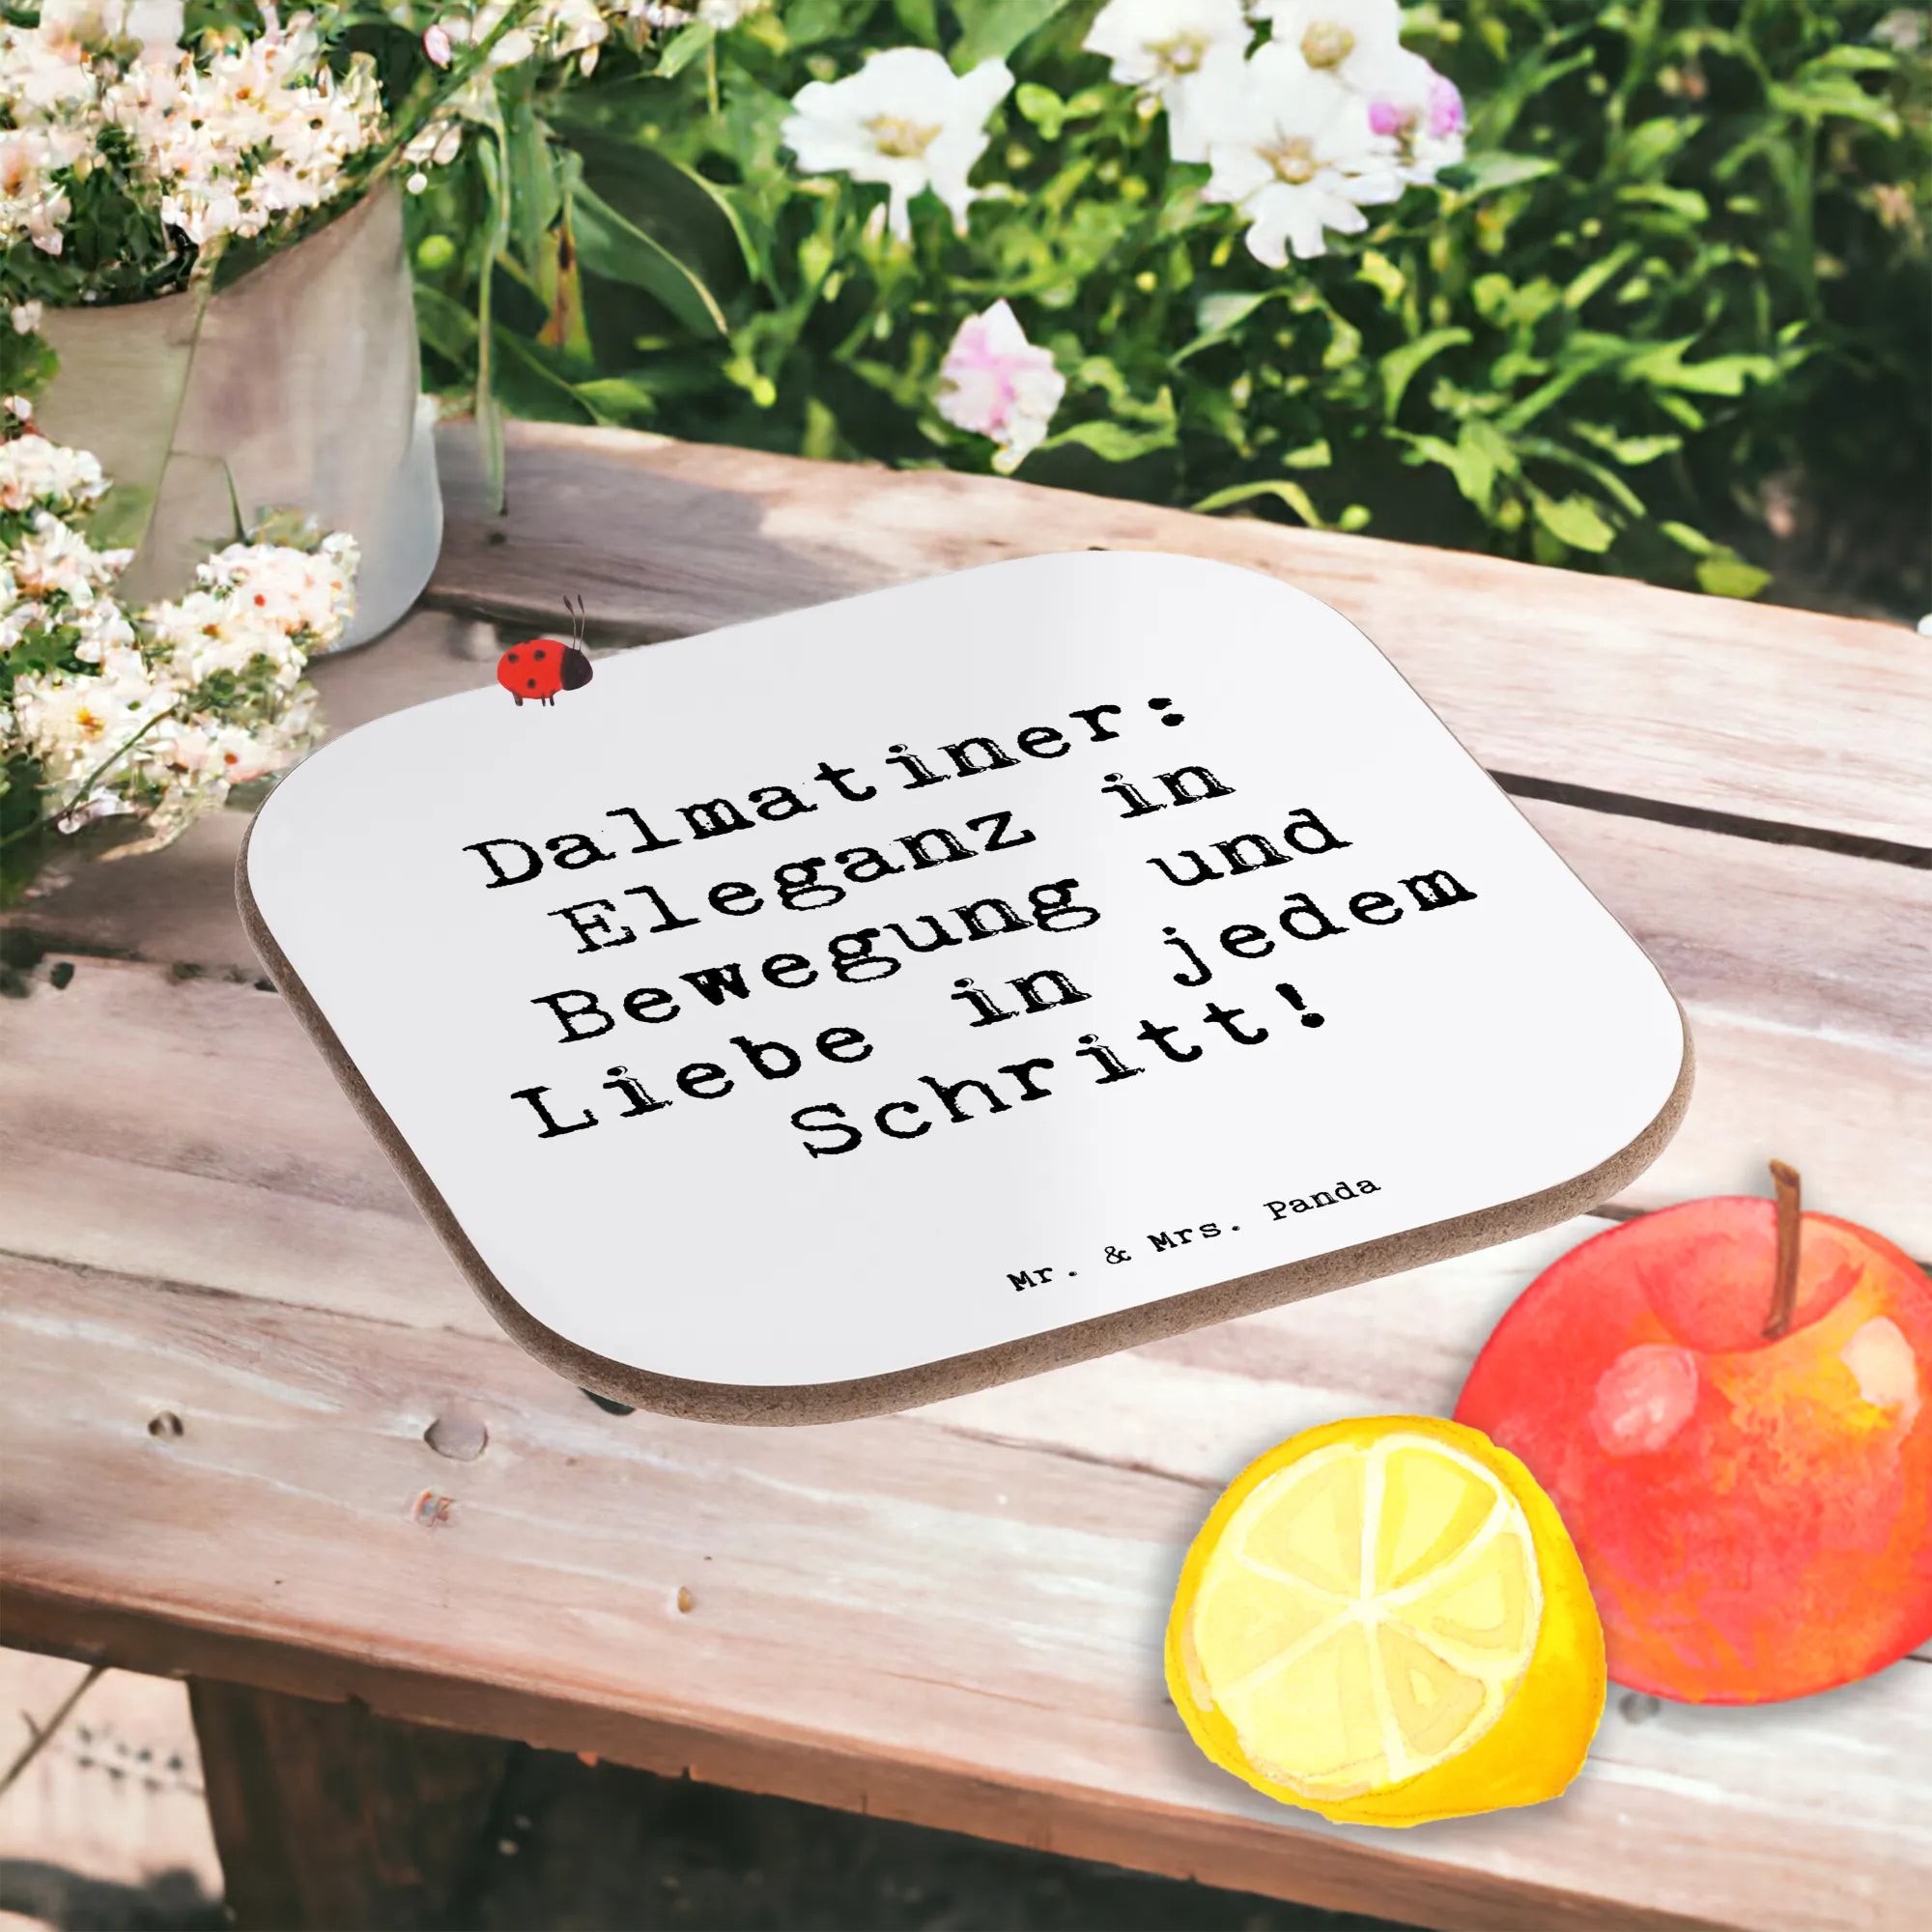 Dalmatiner:
Eleganz in
Bewegung und
Liebe in jedem
Schritt!
Mr. & Mrs. Panda